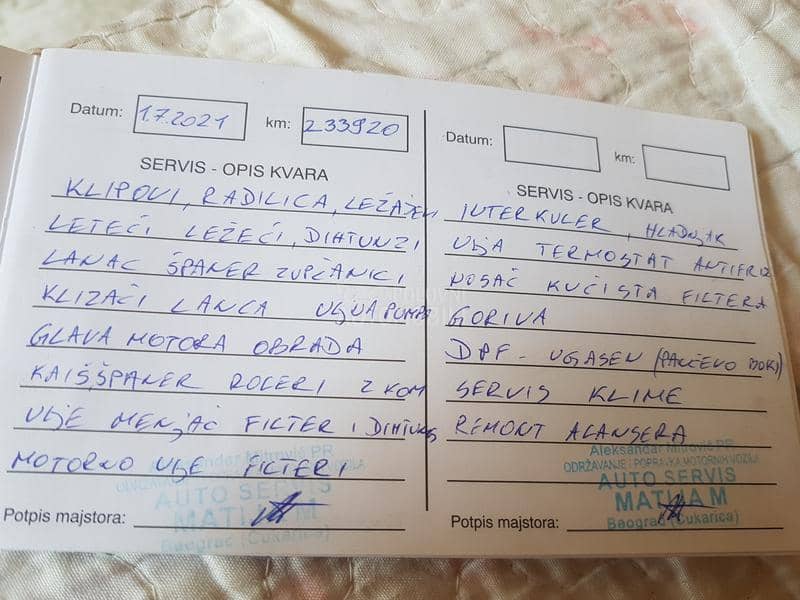 Datum: 1.7.2021 km: 233920
SERVIS - OPIS KVARA
KLIPOVI, RADILICA, LEŽAJEVI
LETEĆI LEŽEĆI, DIHTUNZI
LANAC ŠPANER ZUPČANICI
KLIZAČI LANCA ULJA PUMPA
GLAVA MOTORA OBRADA
KAIŠ ŠPANER ROLERI 2 KOM
ULJE MENJAČ FILTER I DIHTUNG
MOTORNO ULJE FILTERI
Aleksandar Mitrović PR
AUTO SERVIS
MATIJA M
Beograd (Čukarica)
Potpis majstora:
Datum: km:
SERVIS - OPIS KVARA
INTERKULER, HLADNJAK
ULJA TERMOSTAT ANTIFRIZ
NOSAČ KUĆIŠTA FILTERA
GORIVA
DPF - UGAŠEN (PANČEVO
SERVIS KLIME
REMONT ALANSERA
Aleksandar Mitrović PR
ODRŽAVANJE I POPRAVKA MOTORNIH VOZILA
AUTO SERVIS
MATIJA M
Beograd (Čukarica)
Potpis majstora: